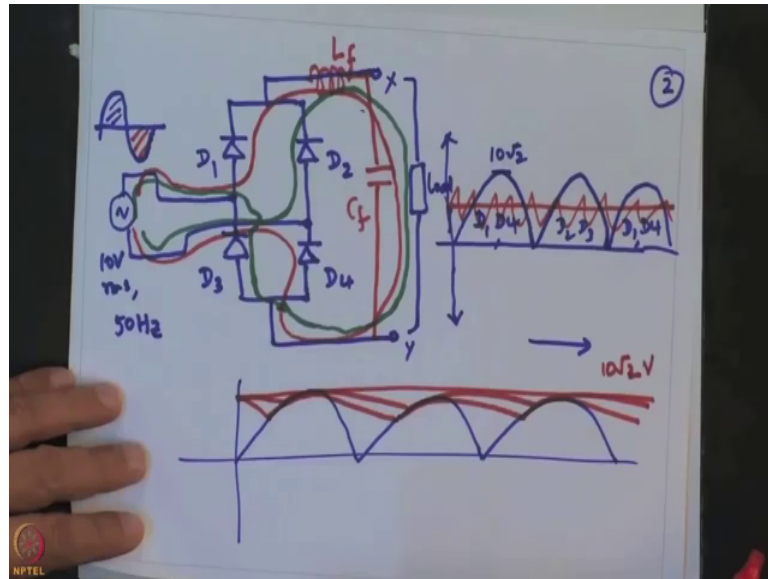 2
Lf
X
D1
D2
Cf
Load
10√2
D1 D4
D2 D3
D1 D4
~
10V
rms,
50Hz
D3
D4
Y
10√2 V
NPTEL